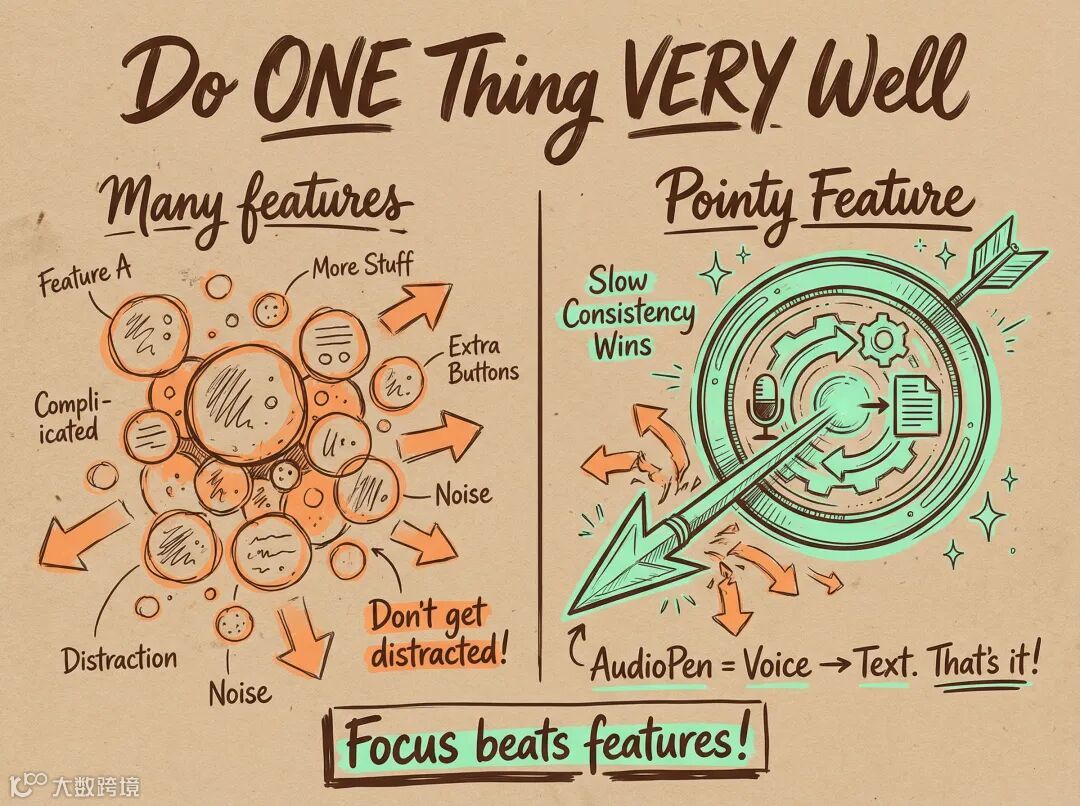 Do ONE Thing VERY Well
Many features
Feature A
More Stuff
Extra
Buttons
Compli-
icated
Noise
Distraction
Noise
Don't get
distracted!
Pointy Feature
Slow
Consistency
Wins
AudioPen = Voice → Text. That's it!
Focus beats features!
大数跨境